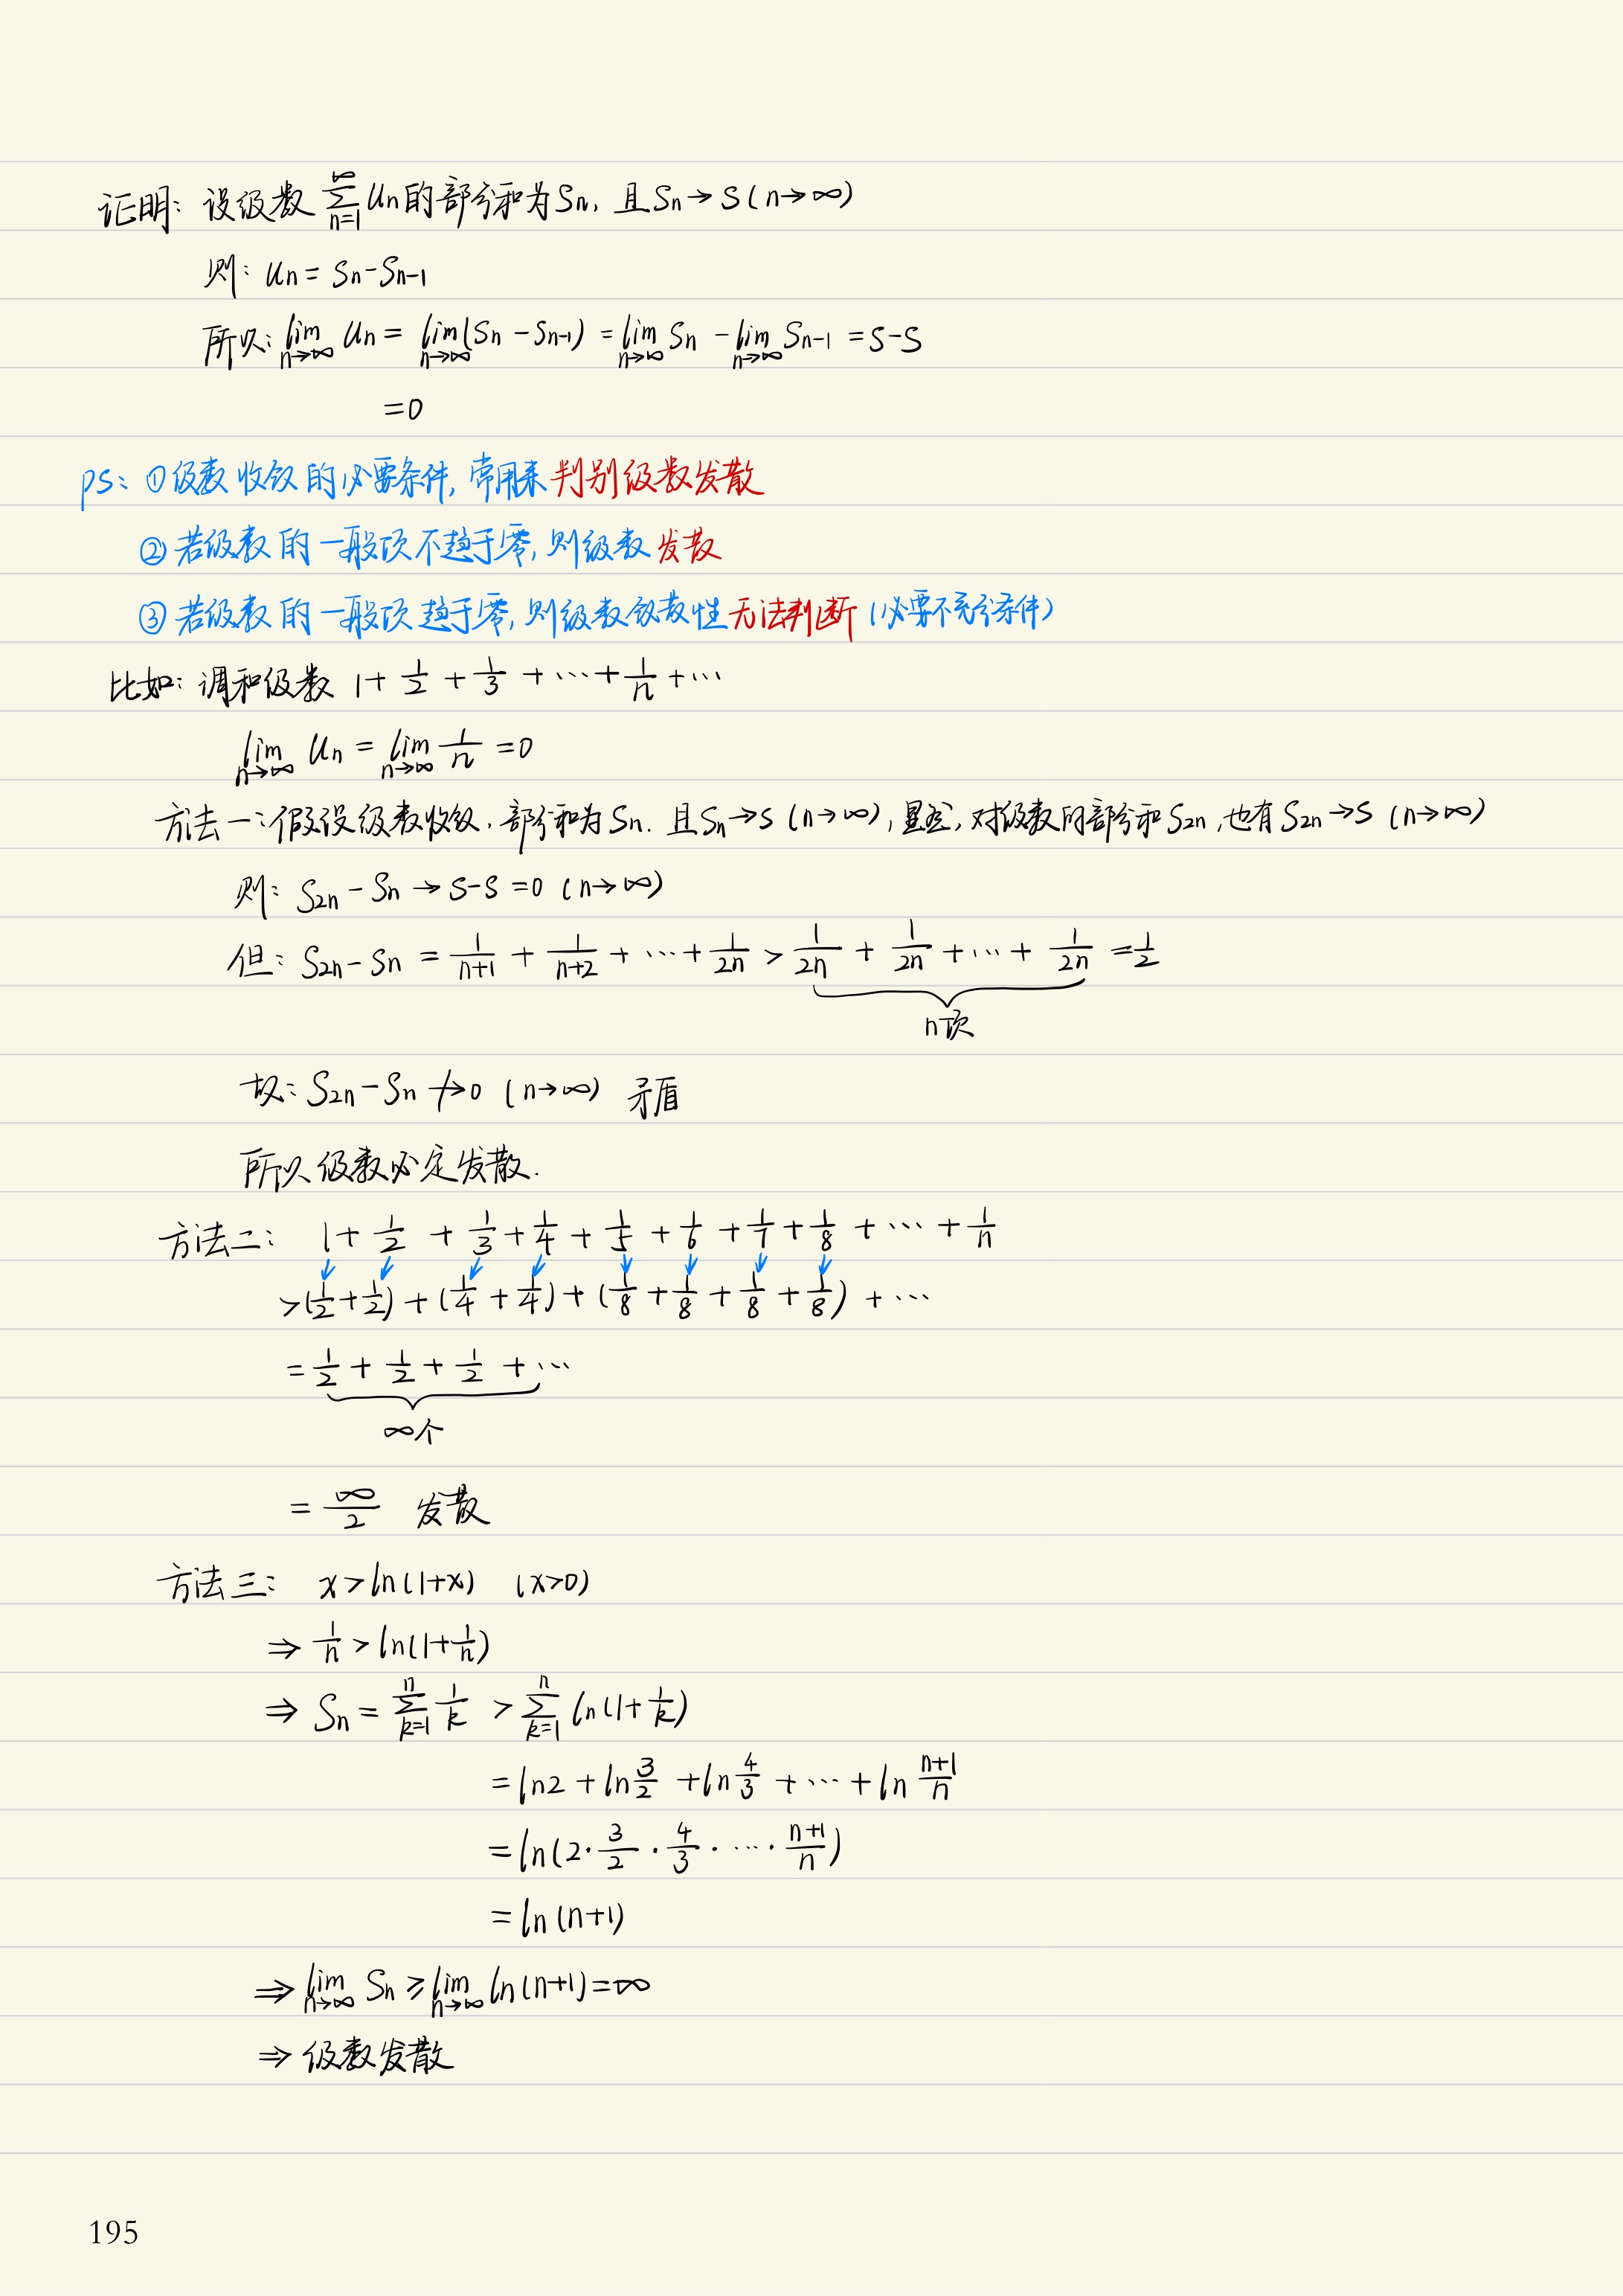 证明: 设级数 $\sum_{n=1}^{\infty} u_n$ 的部分和为 $S_n$, 且 $S_n \to S (n \to \infty)$
则: $u_n = S_n - S_{n-1}$
所以: $\lim_{n \to \infty} u_n = \lim_{n \to \infty} (S_n - S_{n-1}) = \lim_{n \to \infty} S_n - \lim_{n \to \infty} S_{n-1} = S - S$
$= 0$
ps: ①级数收敛的必要条件, 常用来判别级数发散
②若级数的一般项不趋于零, 则级数发散
③若级数的一般项趋于零, 则级数敛散性无法判断 (必要不充分条件)
比如: 调和级数 $1 + \frac{1}{2} + \frac{1}{3} + \cdots + \frac{1}{n} + \cdots$
$\lim_{n \to \infty} u_n = \lim_{n \to \infty} \frac{1}{n} = 0$
方法一: 假设级数收敛, 部分和为 $S_n$. 且 $S_n \to S (n \to \infty)$, 显然, 对级数的部分和 $S_{2n}$, 也有 $S_{2n} \to S (n \to \infty)$
则: $S_{2n} - S_n \to S - S = 0 (n \to \infty)$
但: $S_{2n} - S_n = \frac{1}{n+1} + \frac{1}{n+2} + \cdots + \frac{1}{2n} > \frac{1}{2n} + \frac{1}{2n} + \cdots + \frac{1}{2n} = \frac{1}{2}$
n项
故: $S_{2n} - S_n \not\to 0 (n \to \infty)$ 矛盾
所以级数必定发散.
方法二: $1 + \frac{1}{2} + \frac{1}{3} + \frac{1}{4} + \frac{1}{5} + \frac{1}{6} + \frac{1}{7} + \frac{1}{8} + \cdots + \frac{1}{n}$
$> (\frac{1}{2} + \frac{1}{2}) + (\frac{1}{4} + \frac{1}{4}) + (\frac{1}{8} + \frac{1}{8} + \frac{1}{8} + \frac{1}{8}) + \cdots$
$= \frac{1}{2} + \frac{1}{2} + \frac{1}{2} + \cdots$
∞个
$= \frac{\infty}{2}$ 发散
方法三: $x > \ln(1+x)$ $(x > 0)$
$\Rightarrow \frac{1}{n} > \ln(1 + \frac{1}{n})$
$\Rightarrow S_n = \sum_{k=1}^{n} \frac{1}{k} > \sum_{k=1}^{n} \ln(1 + \frac{1}{k})$
$= \ln 2 + \ln \frac{3}{2} + \ln \frac{4}{3} + \cdots + \ln \frac{n+1}{n}$
$= \ln(2 \cdot \frac{3}{2} \cdot \frac{4}{3} \cdot \cdots \cdot \frac{n+1}{n})$
$= \ln(n+1)$
$\Rightarrow \lim_{n \to \infty} S_n \geq \lim_{n \to \infty} \ln(n+1) = \infty$
⇒ 级数发散
195